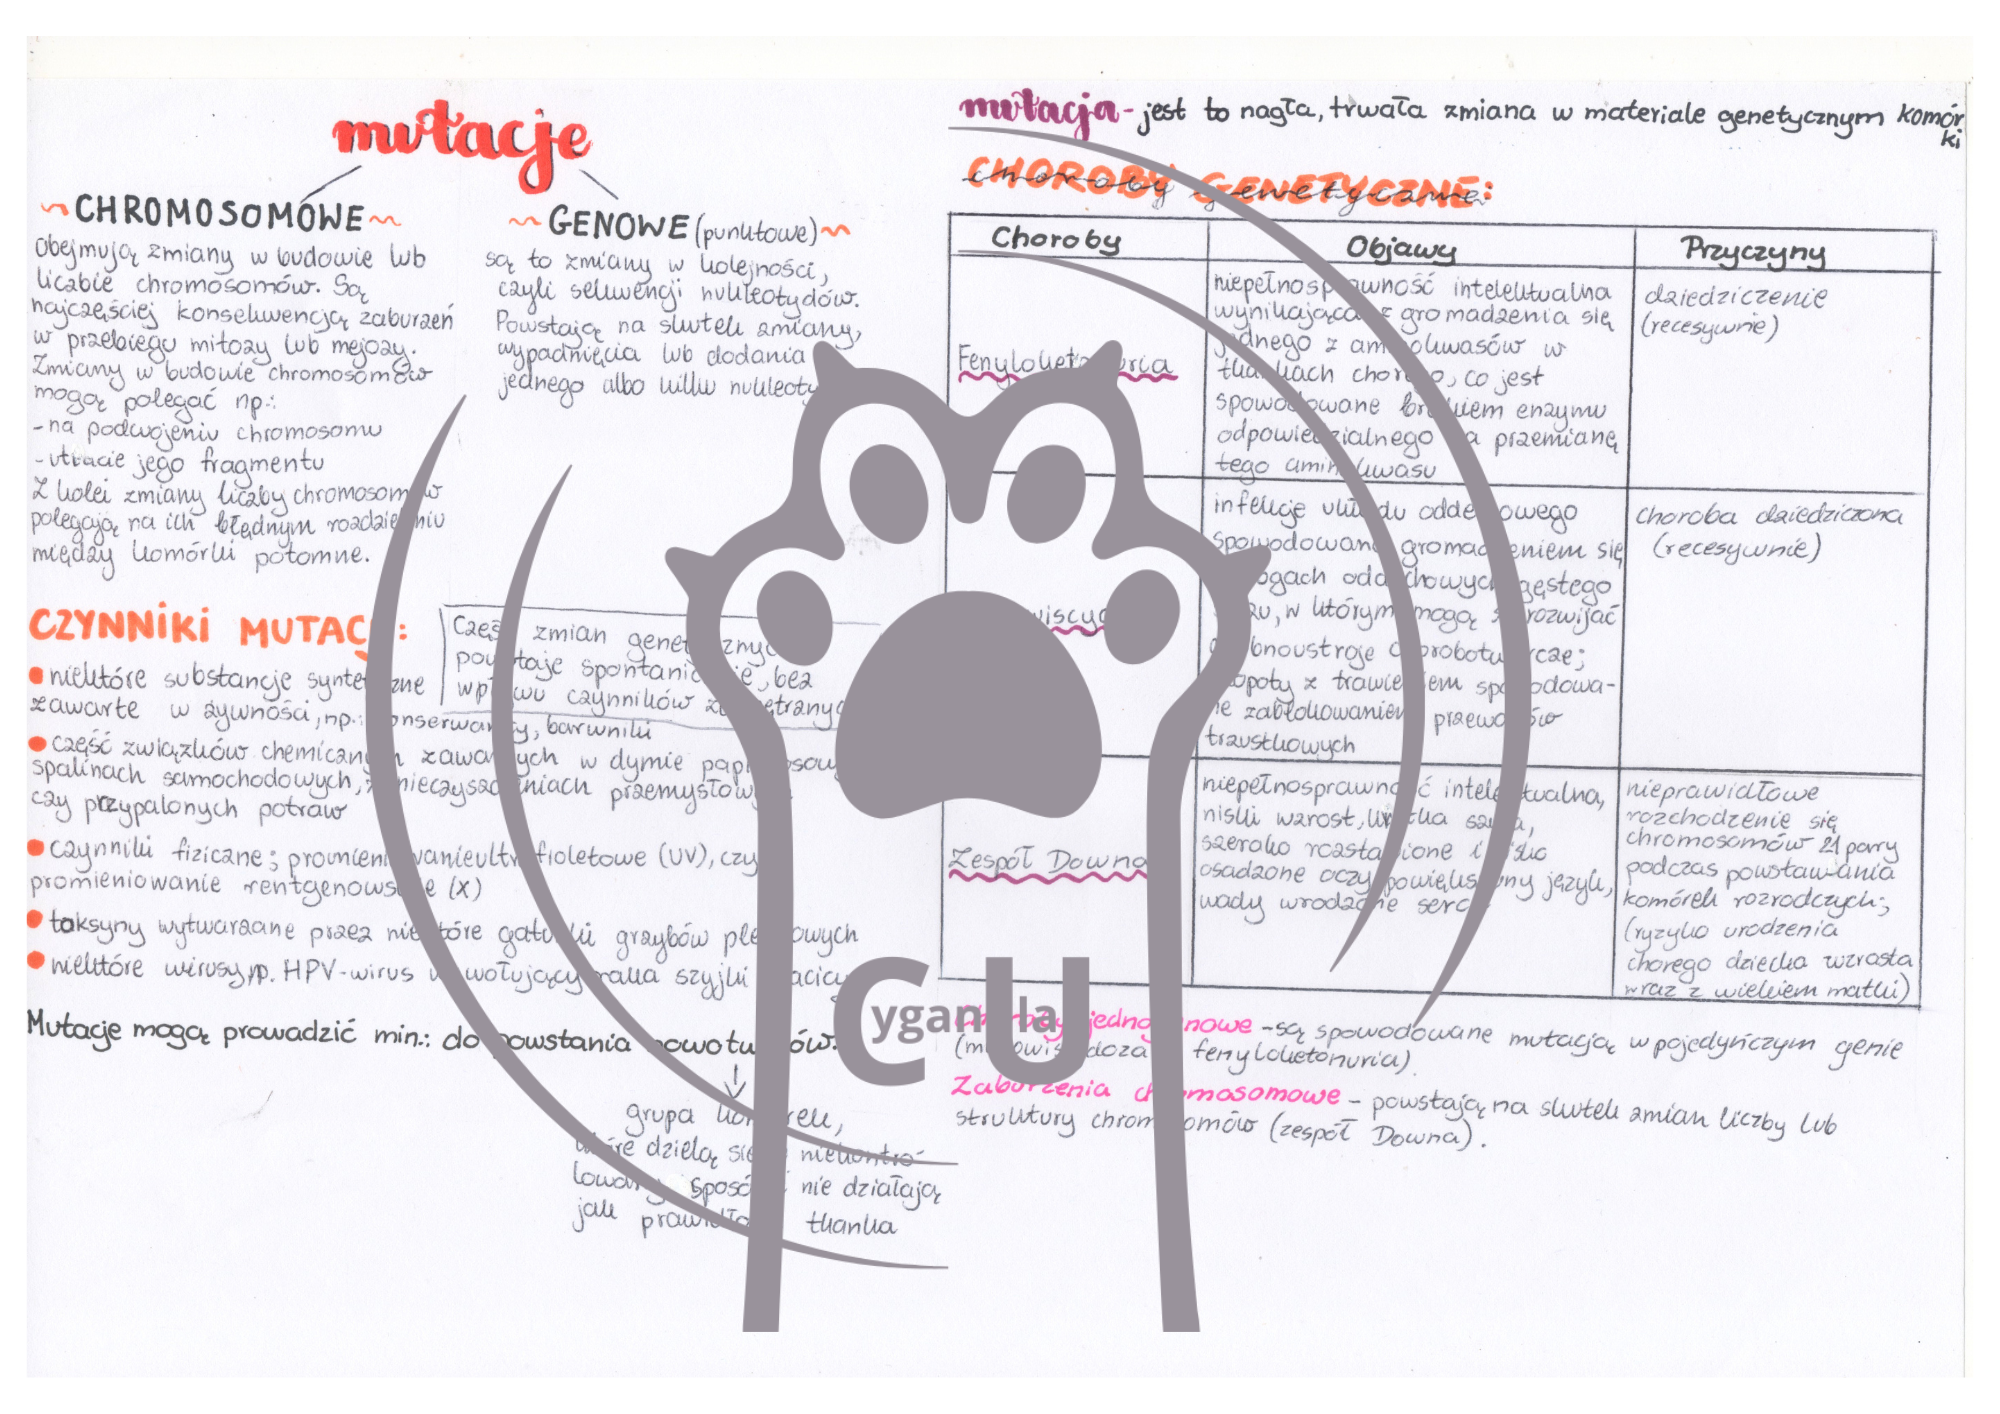 mutacje
~CHROMOSOMOWE~
Obejmują zmiany w budowie lub
liczbie chromosomów. Są
najczęściej konsekwencją zaburzeń
w przebiegu mitozy lub mejozy.
Zmiany w budowie chromosomów
mogą polegać np.:
- na podwojeniu chromosomu
- utracie jego fragmentu
Z kolei zmiany liczby chromosomów
polegają na ich błędnym rozdzieleniu
między komórki potomne.
~GENOWE (punktowe)~
są to zmiany w kolejności,
czyli sekwencji nukleotydów.
Powstają na skutek zmiany,
wypadnięcia lub dodania
jednego albo kilku
CZYNNIKI
Część zmian genetycznych
powstaje spontanicznie, bez
wpływu czynników
• niektóre substancje syntetyczne
zawarte w żywności, np.: konserwanty, barwniki
• część związków chemicznych zawartych w dymie
spalinach samochodowych, zanieczyszczeniach
czy przypalonych potraw
• czynniki fizyczne; (UV), czy
promieniowanie rentgenowskie (X)
• toksyny wytwarzane przez niektóre gatunki grzybów
• niektóre wirusy, np. HPV-wirus wywołujący raka szyjki macicy
Mutacje mogą prowadzić min.: do powstania nowotworów.
grupa komórek,
które dzielą się
sposób i nie działają
jak tkanka
mutacja - jest to nagła, trwała zmiana w materiale genetycznym komór
ki
CHOROBY GENETYCZNE:
Choroby Objawy Przyczyny
Fenyloketonuria
niepełnosprawność intelektualna
wynikająca z gromadzenia się
jednego z aminokwasów w
tkankach chorego, co jest
spowodowane brakiem enzymu
odpowiedzialnego za przemianę
tego aminokwasu
dziedziczenie
(recesywnie)
infekcje układu oddechowego
spowodowane gromadzeniem się
drogach oddechowych gęstego
śluzu, w którym mogą się rozwijać
drobnoustroje chorobotwórcze;
kłopoty z trawieniem spowodowa-
ne zablokowaniem przewodów
trzustkowych
choroba dziedziczona
(recesywnie)
Zespół Downa
niepełnosprawność intelektualna,
niski wzrost, krótka szyja,
szeroko rozstawione i
osadzone oczy, powiększony język,
wady wrodzone serca
nieprawidłowe
rozchodzenie się
chromosomów 21 pary
podczas powstawania
komórek rozrodczych;
(ryzyko urodzenia
chorego dziecka wzrasta
wraz z wiekiem matki)
Choroby jednogenowe - są spowodowane mutacją w pojedyńczym genie
(mukowiscydoza i fenyloketonuria).
Zaburzenia chromosomowe - powstają na skutek zmian liczby lub
struktury chromosomów (zespół Downa).
C U
ygan la